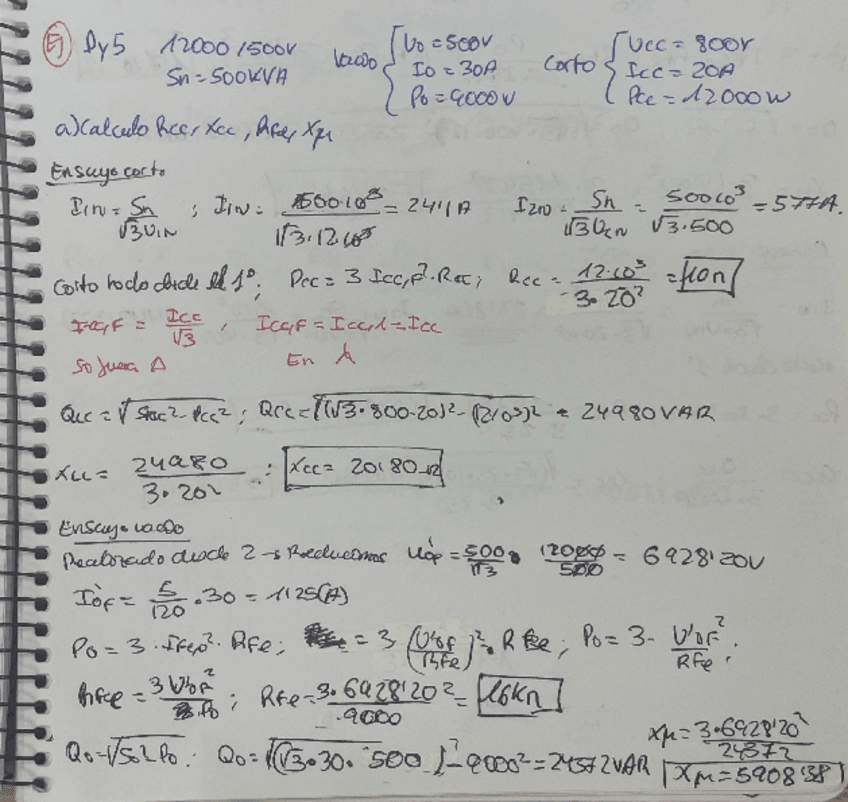 Ej Dy5 12000/500V Vacio { U0 = 500V Corto { Ucc = 800V
Sn = 500KVA I0 = 30A Icc = 20A
P0 = 9000W Pcc = 12000W
a) Calculo Rcc, Xcc, Rfe, Xµ
Ensayo corto
I1N = Sn/√3U1N ; I1N = 500·10³/√3·12·10³ = 24'1A I2N = Sn/√3U2N = 500·10³/√3·500 = 577A.
Corto todo desde el 1º; Pcc = 3 Icc,F²·Rcc; Rcc = 12·10³/3·20² = 10Ω
Icc,F = Icc/√3 ; Icc,F = Icc,L = Icc
So fuera Δ En λ
Qcc = √Scc²-Pcc²; Qcc = √(√3·800·20)²-(12·10³)² = 24980VAR
Xcc = 24980/3·20² ∴ Xcc = 20'80Ω
Ensayo vacio
Realizado desde 2 → Reducimos U'0F = 500/√3 · 12000/500 = 6928'20V
I'0F = 5/120 · 30 = 1'25(A)
P0 = 3·Ife,0²·Rfe; = 3 (U'0F/Rfe)²·Rfe; P0 = 3· U'0F²/Rfe;
Rfe = 3U'0F²/P0; Rfe = 3·6928'20²/9000 = 16KΩ
Q0 = √S0²P0. Q0 = √(√3·30·500)²-9000² = 24372VAR
Xµ = 3·6928'20²/24372
Xµ = 5908'38